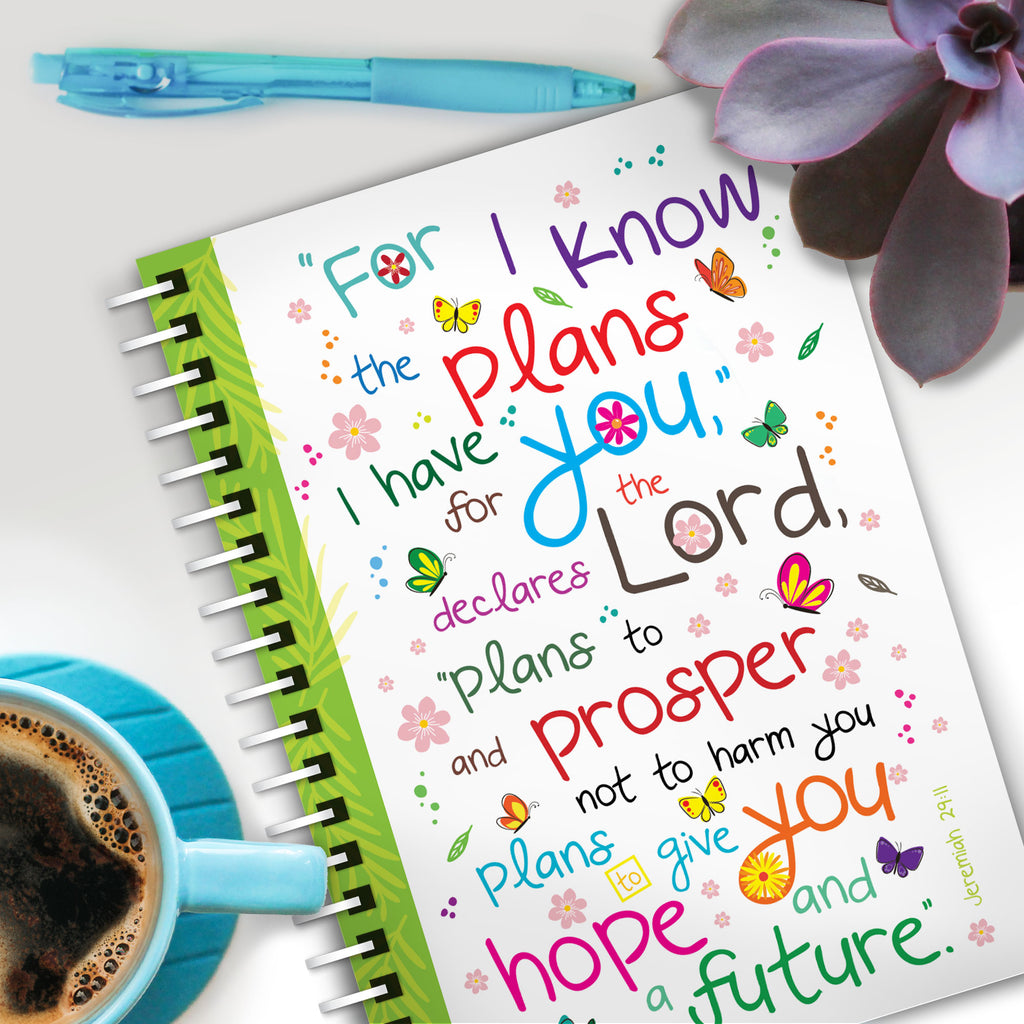 "For I know
the plans
I have for you,"
declares the Lord,
"plans" to
and prosper
not to harm you
plans to give you
hope and
a future."
Jeremiah 29:11